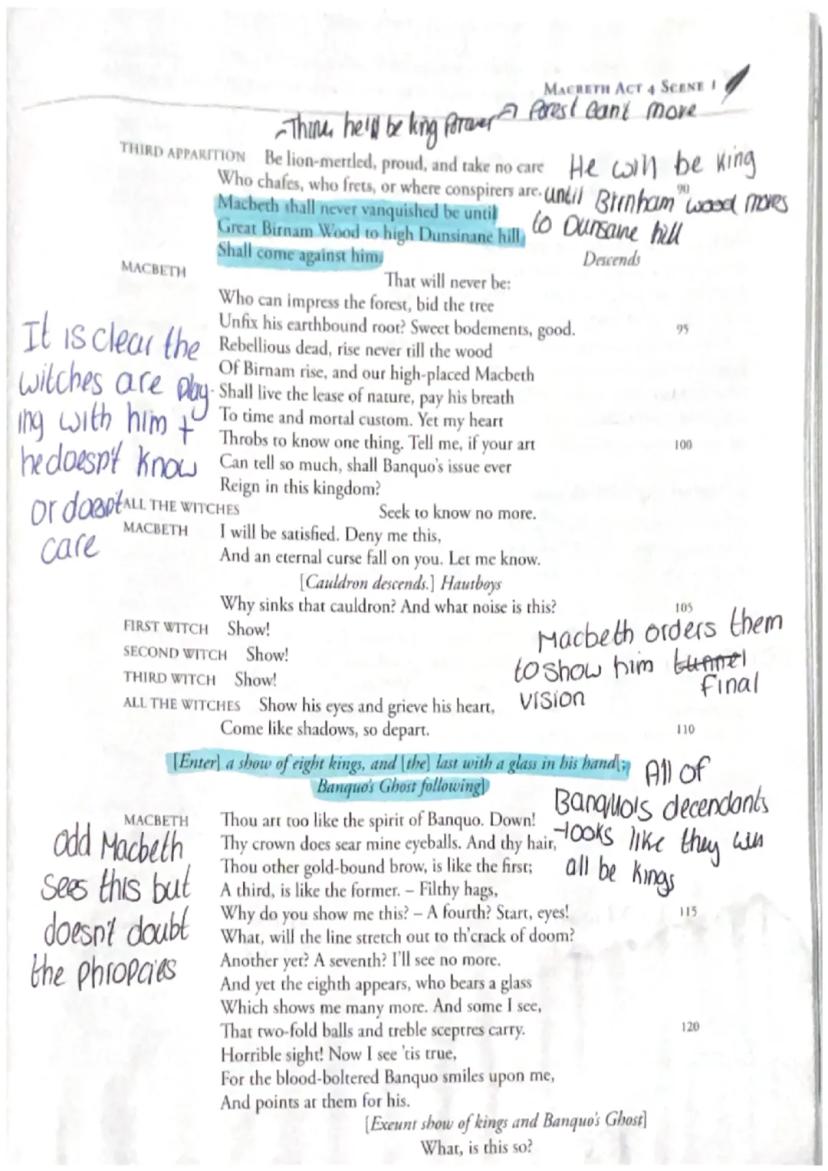 MACBETH ACT 4 SCENE 1
he'll be king forever → forest can't move
THIRD APPARITION Be lion-mettled, proud, and take no care
He will be king
Who chafes, who frets, or where conspirers are.
90
until Birnham wood moves
Macbeth shall never vanquished be until
Great Birnam Wood to high Dunsinane hill
to Dunsane hill
Shall come against him.
Descends
MACBETH That will never be:
Who can impress the forest, bid the tree
Unfix his earthbound root? Sweet bodements, good. 95
Rebellious dead, rise never till the wood
Of Birnam rise, and our high-placed Macbeth
Shall live the lease of nature, pay his breath
To time and mortal custom. Yet my heart
Throbs to know one thing. Tell me, if your art 100
Can tell so much, shall Banquo's issue ever
Reign in this kingdom?
It is clear the
witches are play-
ing with him +
he doesn't know
or doesnt
care
ALL THE WITCHES Seek to know no more.
MACBETH I will be satisfied. Deny me this,
And an eternal curse fall on you. Let me know.
[Cauldron descends.] Hautboys
Why sinks that cauldron? And what noise is this? 105
FIRST WITCH Show!
SECOND WITCH Show!
THIRD WITCH Show!
Macbeth orders them
to show him tunnel
final
vision
ALL THE WITCHES Show his eyes and grieve his heart,
Come like shadows, so depart. 110
[Enter] a show of eight kings, and [the] last with a glass in his hand[;
Banquo's Ghost following]
All of
Banquo's decendants
-looks like they win
all be kings
MACBETH Thou art too like the spirit of Banquo. Down!
Thy crown does sear mine eyeballs. And thy hair,
Thou other gold-bound brow, is like the first;
A third, is like the former. – Filthy hags,
Why do you show me this? – A fourth? Start, eyes! 115
What, will the line stretch out to th'crack of doom?
Another yet? A seventh? I'll see no more.
And yet the eighth appears, who bears a glass
Which shows me many more. And some I see,
That two-fold balls and treble sceptres carry. 120
Horrible sight! Now I see 'tis true,
For the blood-boltered Banquo smiles upon me,
And points at them for his.
odd Macbeth
sees this but
doesn't doubt
the phropcies
[Exeunt show of kings and Banquo's Ghost]
What, is this so?